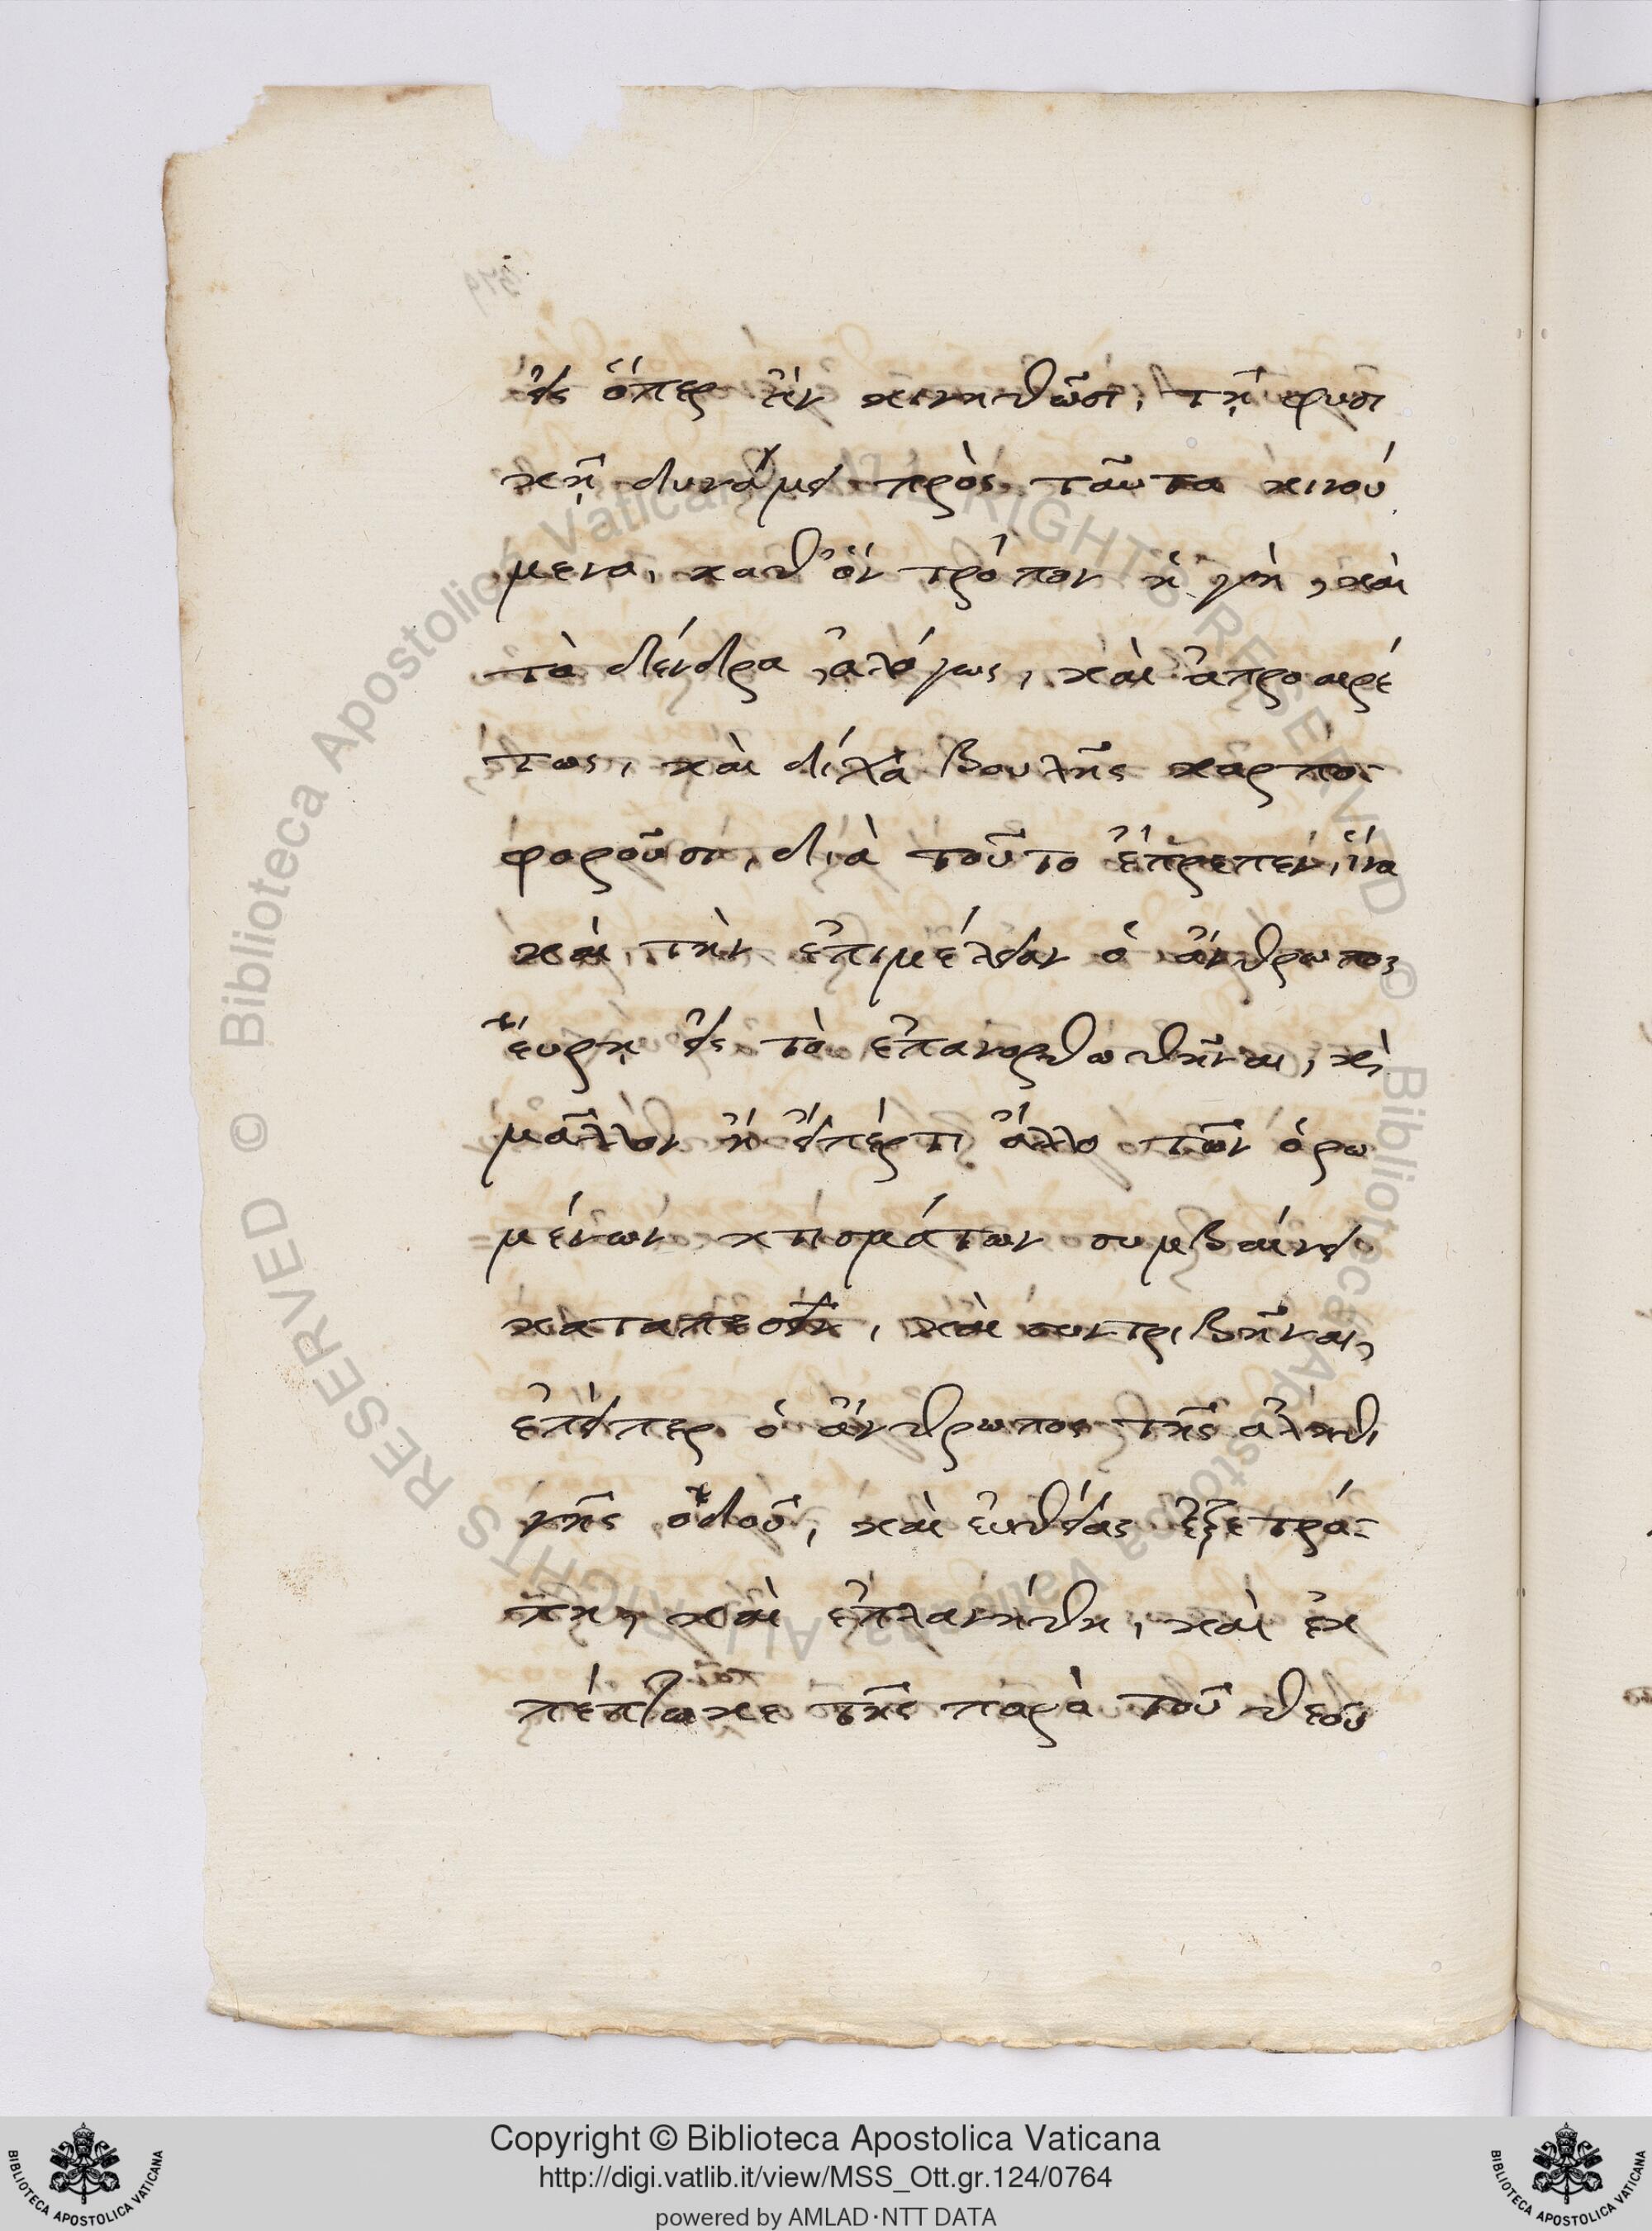 εἰς ὅπερ ἂν κινηθῶσι, τῇ φυσι
κῇ δυνάμει πρὸς ταῦτα κινού
μενα, καθ' ὃν τρόπον ἡ γῆ, καὶ
τὰ δένδρα ἀλόγως, καὶ ἀπροαιρέ
τως, καὶ δίχα βουλῆς καρπο-
φοροῦσι, διὰ τοῦτο ἔπρεπεν, ἵνα
καὶ τὴν ἐπιμέλειαν ὁ ἄνθρωπος
εὕρῃ εἰς τὸ ἐπανορθωθῆναι, κὶ
μᾶλλον ἢ εἴπέρτι ἄλλο τῶν ὁρω
μένων κτισμάτων συμβαίνει
καταπεσεῖν, καὶ συντριβῆναι,
ἐπείπερ ὁ ἄνθρωπος τῆς ἀληθι
νῆς ὁδοῦ, καὶ εὐθείας ἐξετρά-
πη, καὶ ἐπλανήθη, καὶ ἐκ
πέπτωκε τῆς παρὰ τοῦ θεοῦ
Copyright © Biblioteca Apostolica Vaticana
http://digi.vatlib.it/view/MSS_Ott.gr.124/0764
powered by AMLAD·NTT DATA
BIBLIOTECA APOSTOLICA VATICANA
BIBLIOTECA APOSTOLICA VATICANA
© Biblioteca Apostolica Vaticana ALL RIGHTS RESERVED © Biblioteca Apostolica Vaticana ALL RIGHTS RESERVED